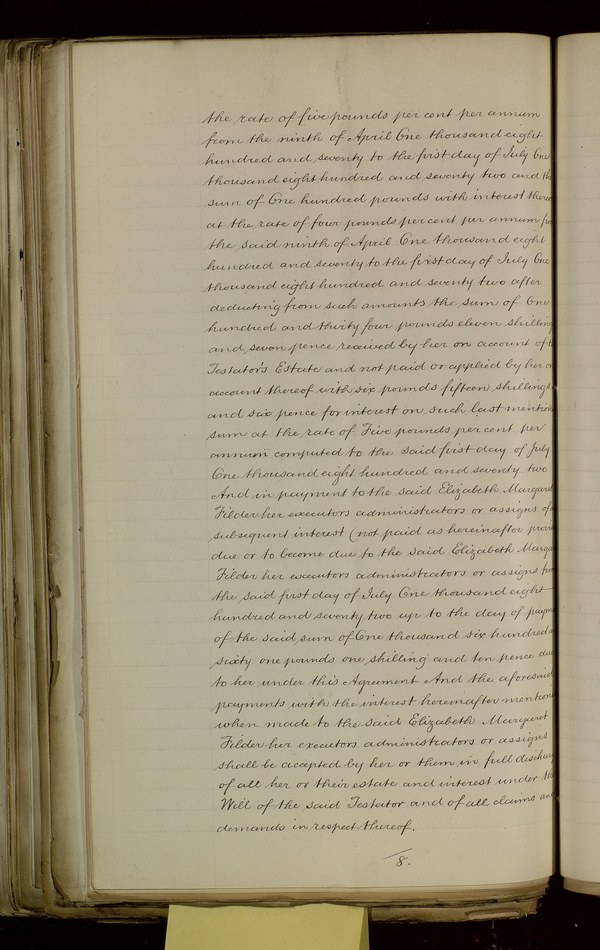 the rate of five pounds per cent per annum
from the ninth of April One thousand eight
hundred and seventy to the first day of July One
thousand eight hundred and seventy two and th
sum of One hundred pounds with interest there
at the rate of four pounds per cent per annum fro
the said ninth of April One thousand eight
hundred and seventy to the first day of July One
thousand eight hundred and seventy two after
deducting from such amounts the sum of One
hundred and thirty four pounds eleven shilling
and seven pence received by her on account of t
Testator's Estate and not paid or applied by her on
account thereof with six pounds fifteen shillings
and six pence for interest on such last mention
sum at the rate of Five pounds per cent per
annum computed to the said first day of July
One thousand eight hundred and seventy two
And in payment to the said Elizabeth Margaret
Filder her executors administrators or assigns of
subsequent interest (not paid as hereinafter provi
due or to become due to the said Elizabeth Marga
Filder her executors administrators or assigns fro
the said first day of July One thousand eight
hundred and seventy two up to the day of paym
of the said sum of One thousand six hundred a
sixty one pounds one shilling and ten pence due
to her under this Agreement And the aforesaid
payments with the interest hereinafter mention
when made to the said Elizabeth Margaret
Filder her executors administrators or assigns
shall be accepted by her or them in full dischar
of all her or their estate and interest under th
Will of the said Testator and of all claims and
demands in respect thereof.
8.